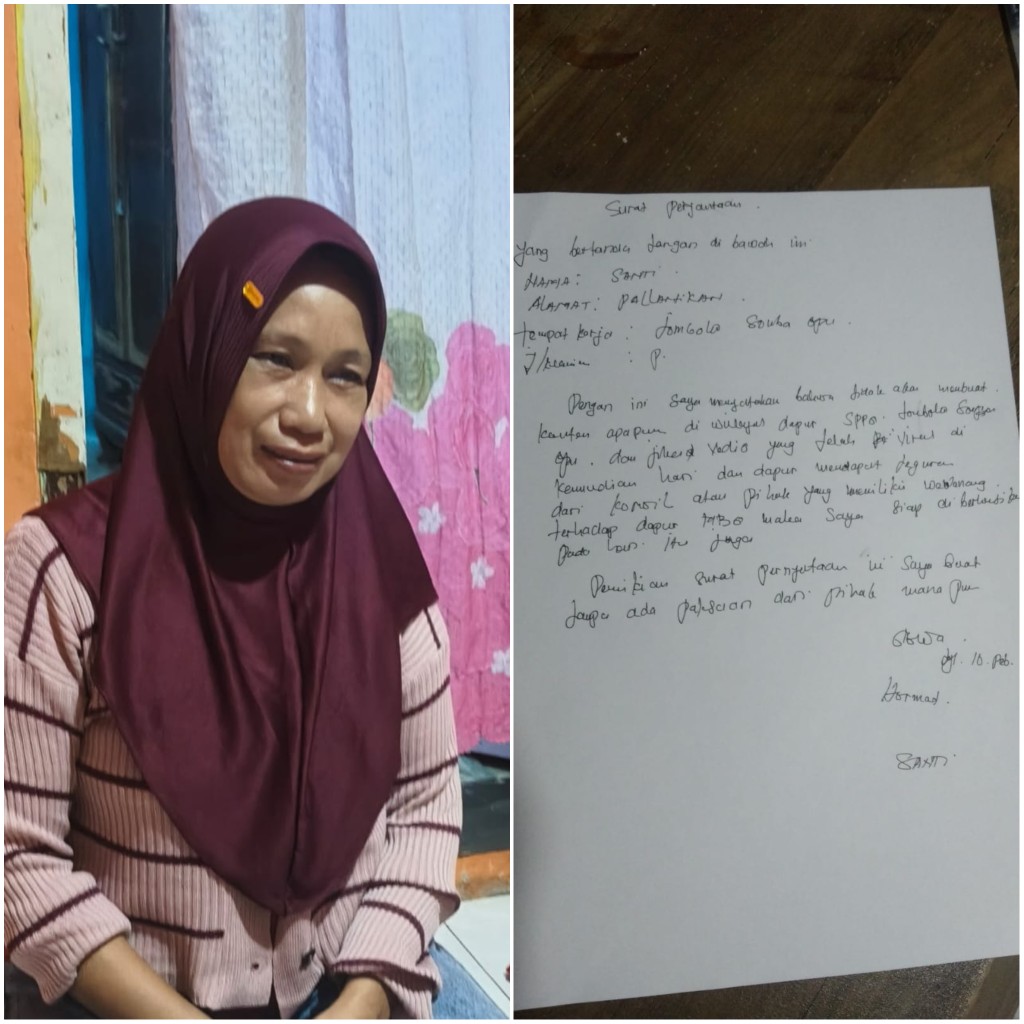 Surat Peryantaan.
yang bertanda tangan di bawah ini
NAMA: SANTI
ALAMAT: PALLANTIKAN.
tempat kerja: tombolo Souha opu.
J/klamin : P.
Dengan ini saya menyatakan bahwa tidak akan membuat
konten apapun di wilayah dapur SPPG tombolo
opu. dan jika Vedio yang telah Virus di
Kemudian hari dan dapur mendapat teguran
dari Korwil atau pihak yang memiliki
terhadap dapur MBG maka Saya siap di
pada hari itu juga
Demikian surat pernyataan ini saya buat
tanpa ada paksaan dari pihak mana pun
GOWA.
tgl. 10. Feb.
Hormat.
SANTI